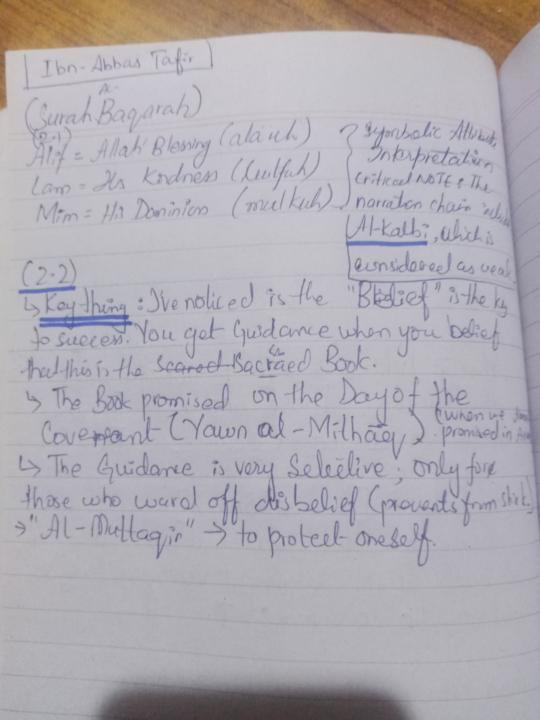 Ibn-Abbas Tafir
(Surah Baqarah)
(2-1)
Alif = Allah' Blessing (ala'uh)
Lam = His Kindness (lutfuh)
Mim = His Dominion (mulkuh)
Symbolic
Interpretation
critical NOTE: The
narration chain
Al-Kalbi, which is
considered as weak
(2.2)
↳ Key thing: I've noticed is the "Belief" is the key
to success. You get Guidance when you belief
that this is the Sacraed Book.
↳ The Book promised on the Day of the
Covenant (Yawn al-Mithaq) (when we
promised in
↳ The Guidance is very Selective; only for
those who ward off disbelief (prevents from shirk)
→ "Al-Muttaqin" → to protect oneself.